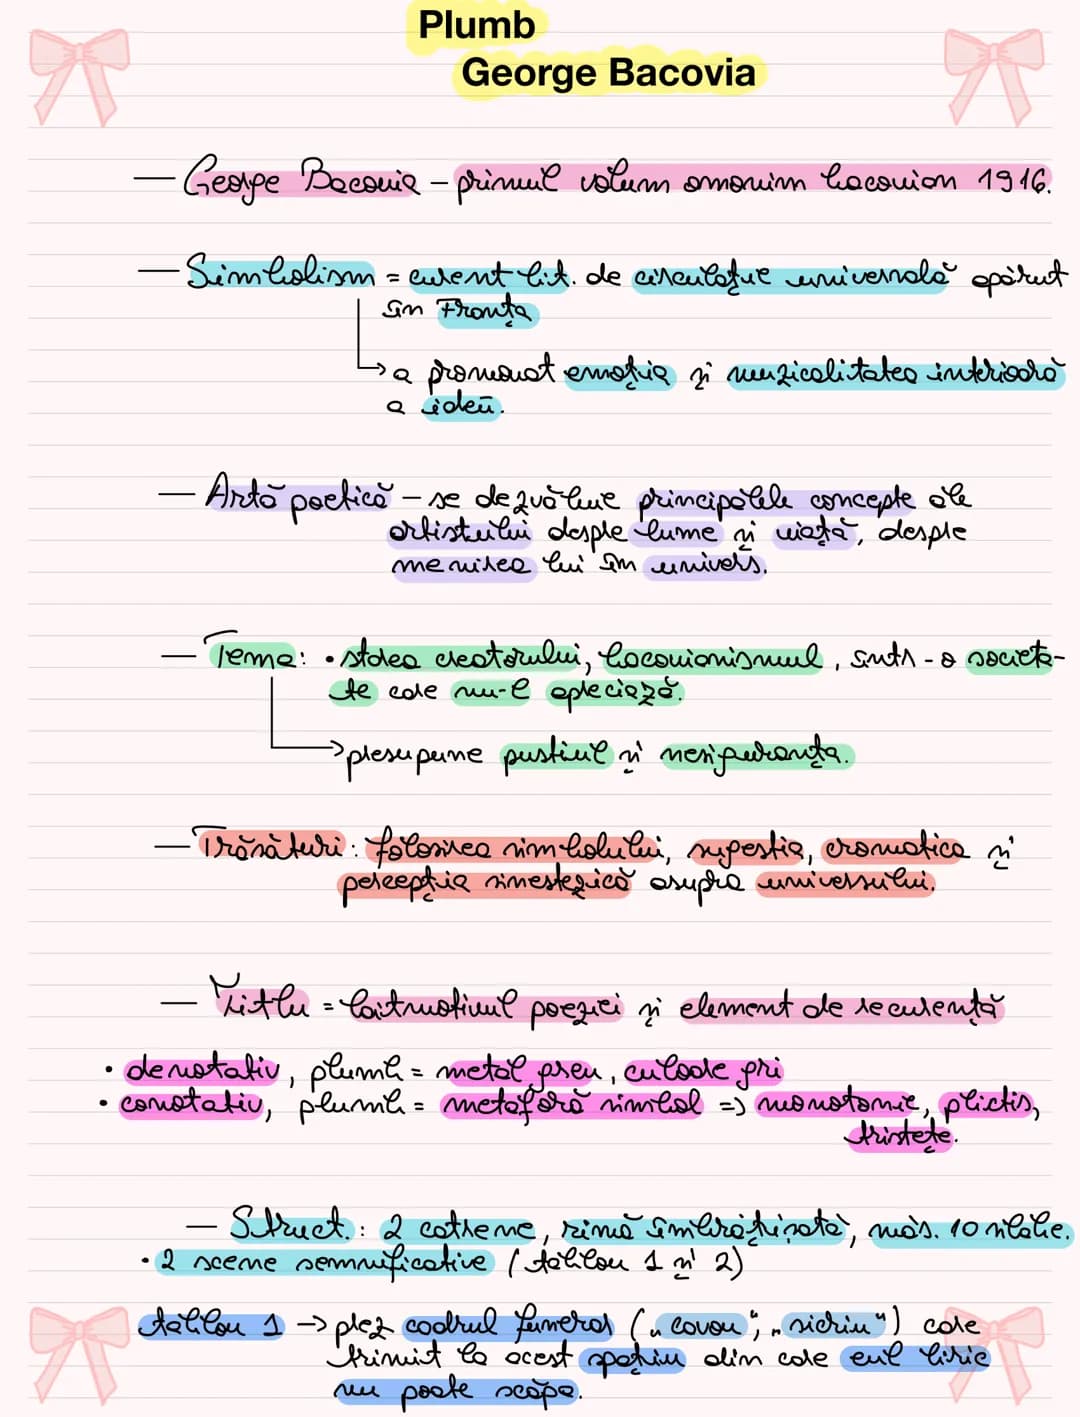 Plumb
George Bacovia
— George Bacovia – primul volum omonim bacovian 1916.
— Simbolism = curent lit. de circulație universală apărut
în Franța
↳ a promovat emoția și muzicalitatea interioară
a ideii.
— Artă poetică – se dezvăluie principalele concepte ale
artistului despre lume și viață, despre
menirea lui în univers.
— Tema: • starea creatorului, bacovianismul, într-o societa-
te care nu-l apreciază.
→ presupune pustiul și nesiguranța.
— Trăsături: folosirea simbolului, sugestia, cromatica și
percepția sinestezică asupra universului.
— Titlu = laitmotivul poeziei și element de recurență
• denotativ, plumb = metal greu, culoare gri
• conotativ, plumb = metaforă simbol => monotonie, plictis,
tristețe.
— Struct.: 2 catrene, rimă îmbrățișată, măs. 10 silabe.
• 2 scene semnificative (tablou 1 și 2)
tablou 1 → prez cadrul funerar („cavou", „sicriu") care
trimit la acest spațiu din care eul liric
nu poate scăpa.